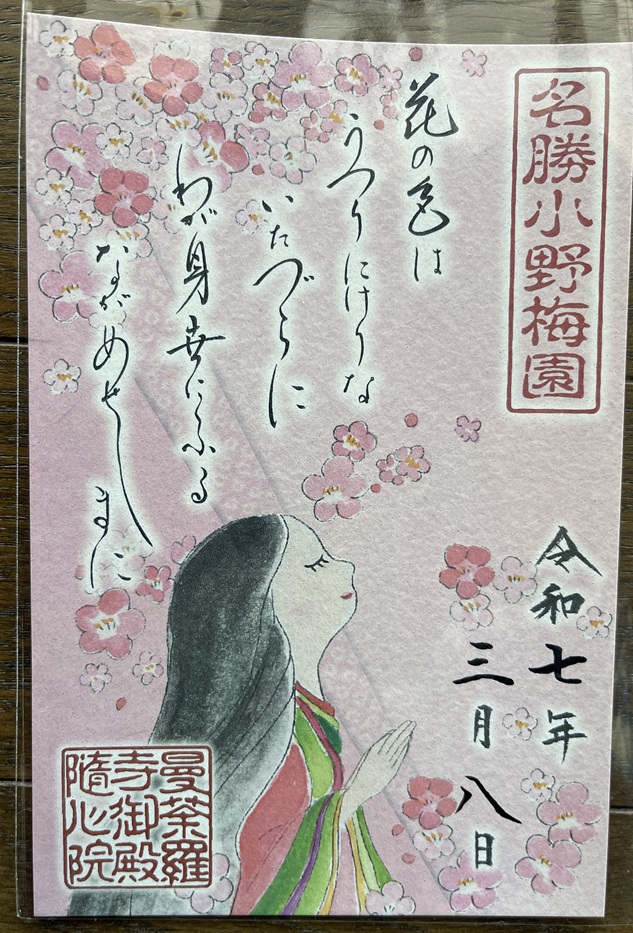 名勝小野梅園
花の色は
うつりにけりな
いたづらに
わが身世にふる
ながめせしまに
令和七年
三月八日
曼荼羅
寺御殿
隨心院